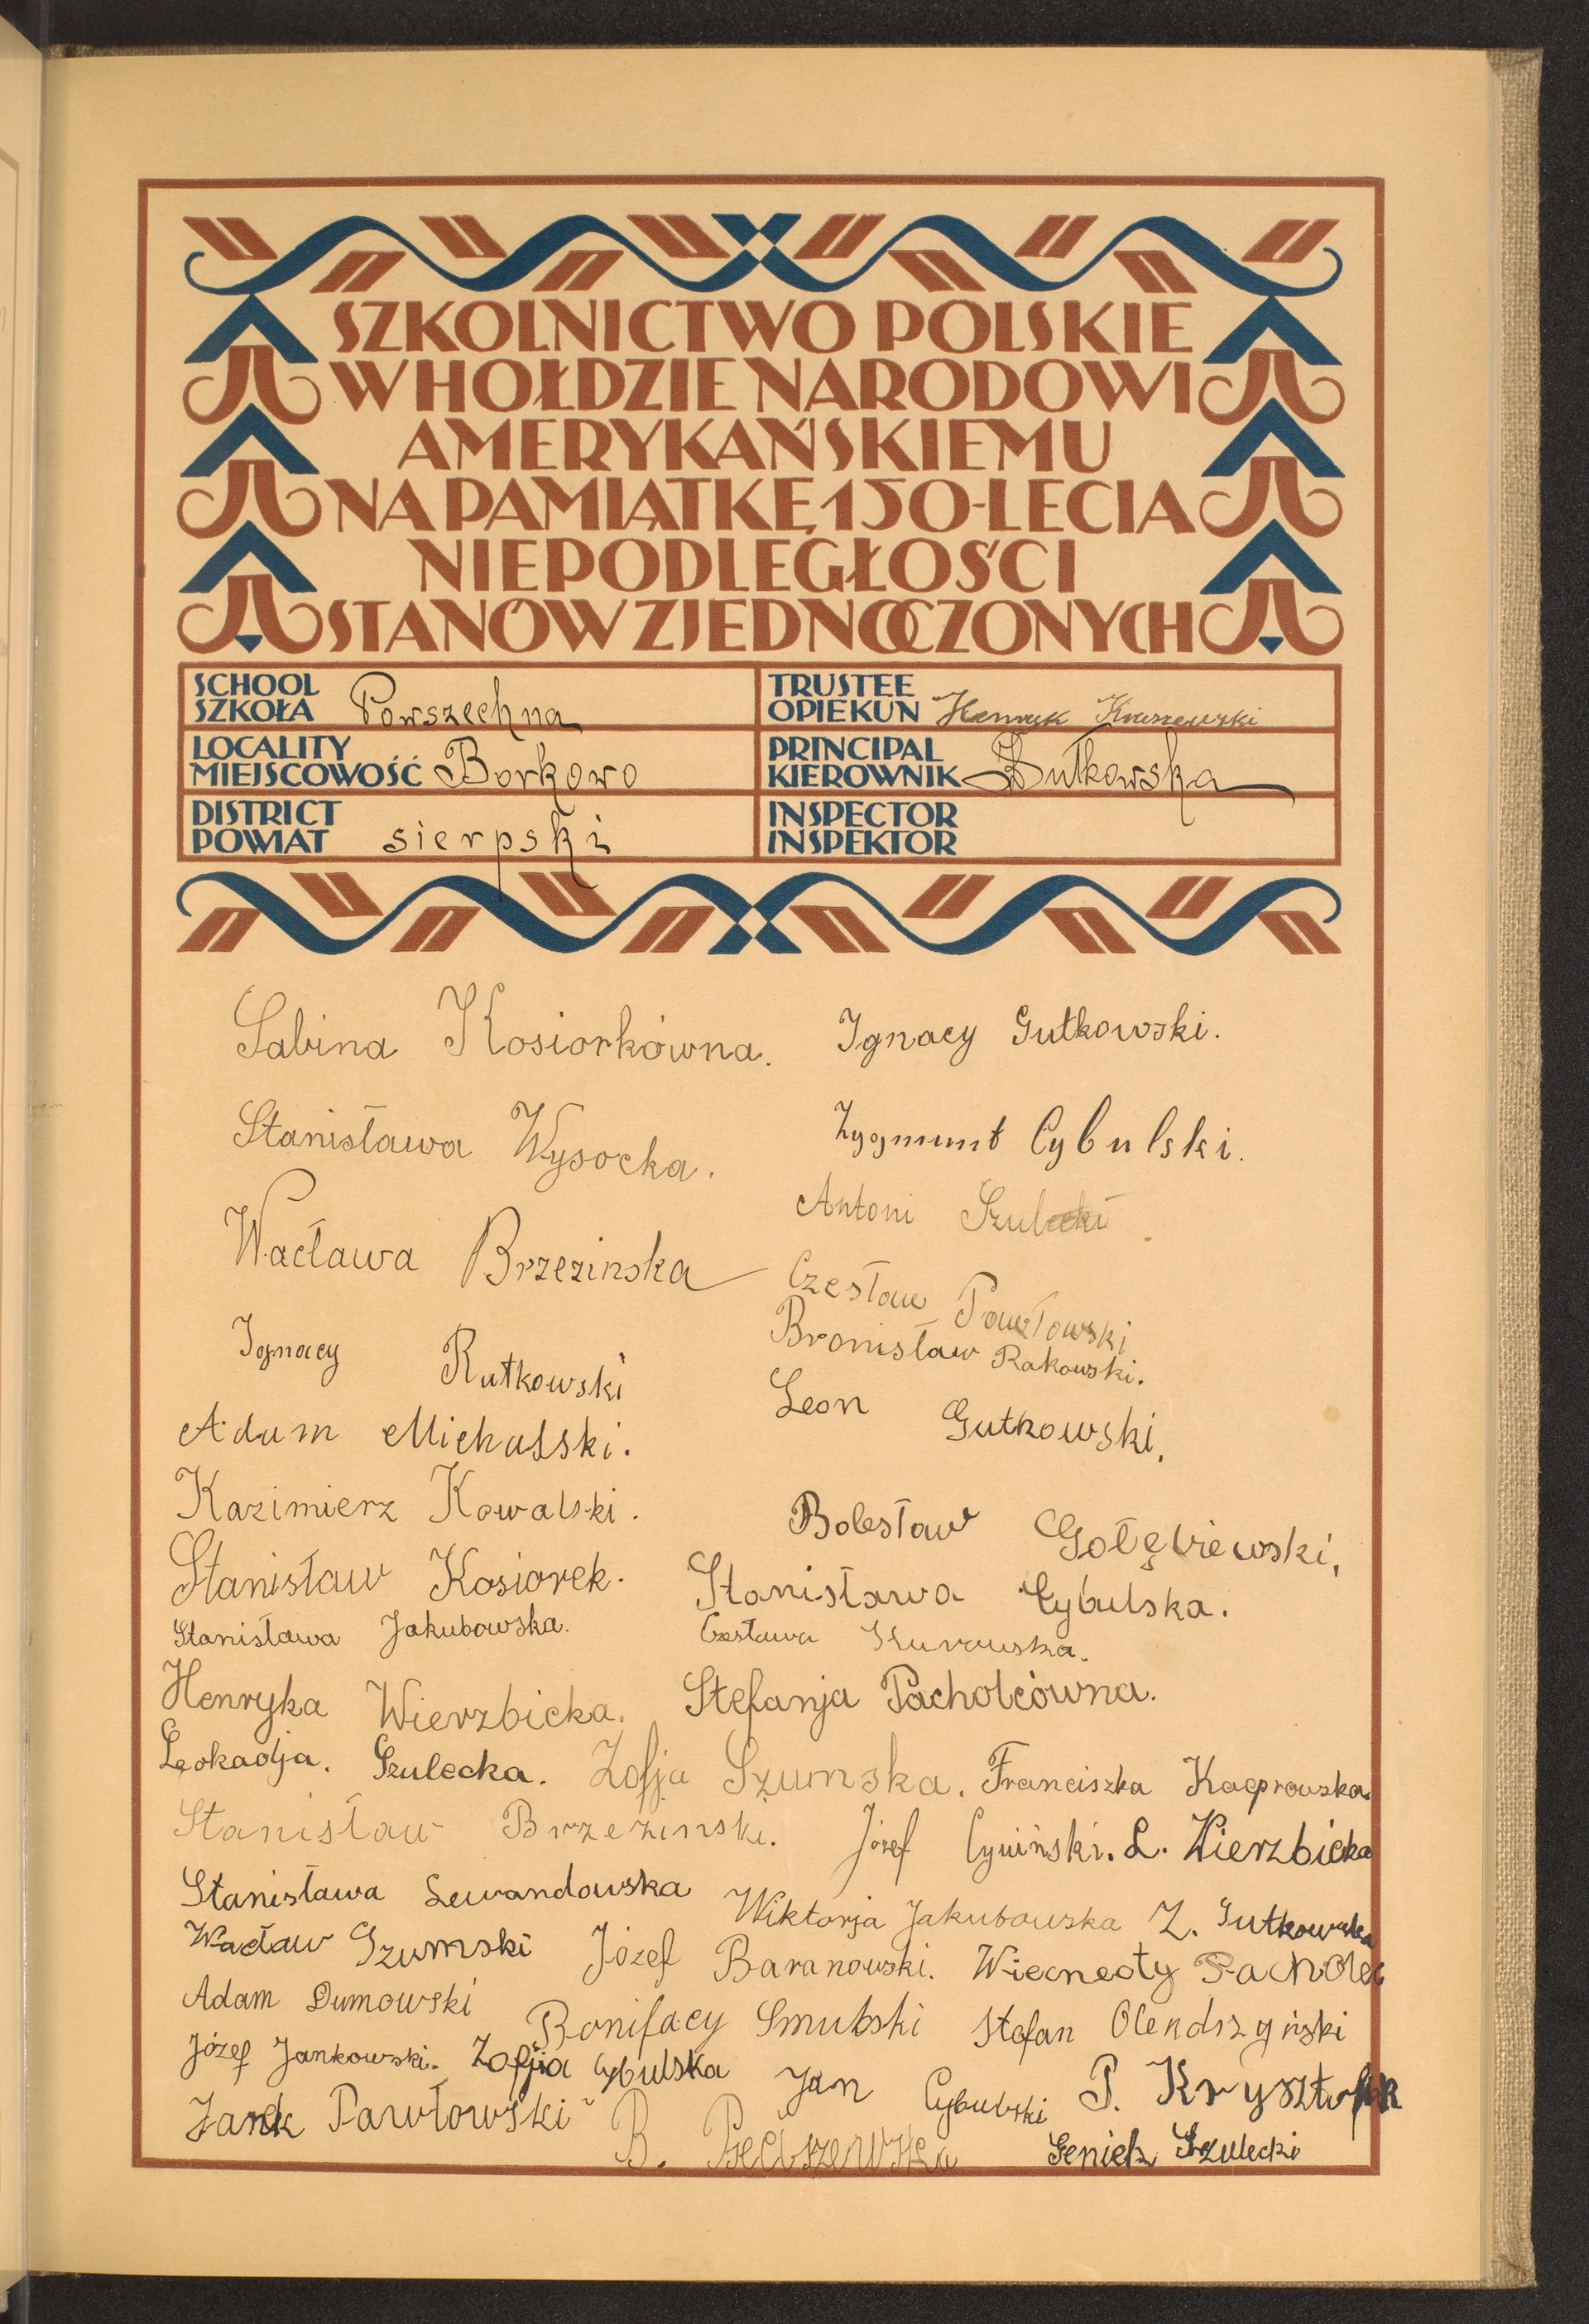 SZKOLNICTWO POLSKIE
W HOŁDZIE NARODOWI
AMERYKAŃSKIEMU
NA PAMIĄTKĘ 150-LECIA
NIEPODLEGŁOŚCI
STANÓW ZJEDNOCZONYCH
SCHOOL
SZKOŁA Powszechna
TRUSTEE
OPIEKUN Henryk Kraszewski
LOCALITY
MIEJSCOWOŚĆ Borkowo
PRINCIPAL
KIEROWNIK Dutkowska
DISTRICT
POWIAT sierpski
INSPECTOR
INSPEKTOR
Sabina Kosiorkówna. Ignacy Gutkowski.
Stanisława Wysocka. Zygmunt Cybulski.
Antoni Szulecki
Wacława Brzezinska
Czesław Pawłowski
Bronisław Rakowski.
Ignacy Rutkowski
Leon Gutkowski.
Adam Michalski.
Kazimierz Kowalski.
Bolesław Gołębiewski,
Stanisław Kosiorek. Stanisława Cybulska.
Stanisława Jakubowska. Czesława
Henryka Wierzbicka. Stefanja Pacholcówna.
Leokadja. Szulecka. Zofja Szumska. Franciszka Kacprowska
Stanisław Brzezinski. Józef Cywiński. L. Wierzbicka
Stanisława Lewandowska Wiktorja Jakubowska Z. Gutkowska
Wacław Szumski Józef Baranowski. Pacholec
Adam Dumowski Bonifacy Smulski Stefan Olendrzyński
Józef Jankowski. Zofjia Cybulska Jan Cybulski P. Krysztofik
Janek Pawłowski B. Geniek Szulecki